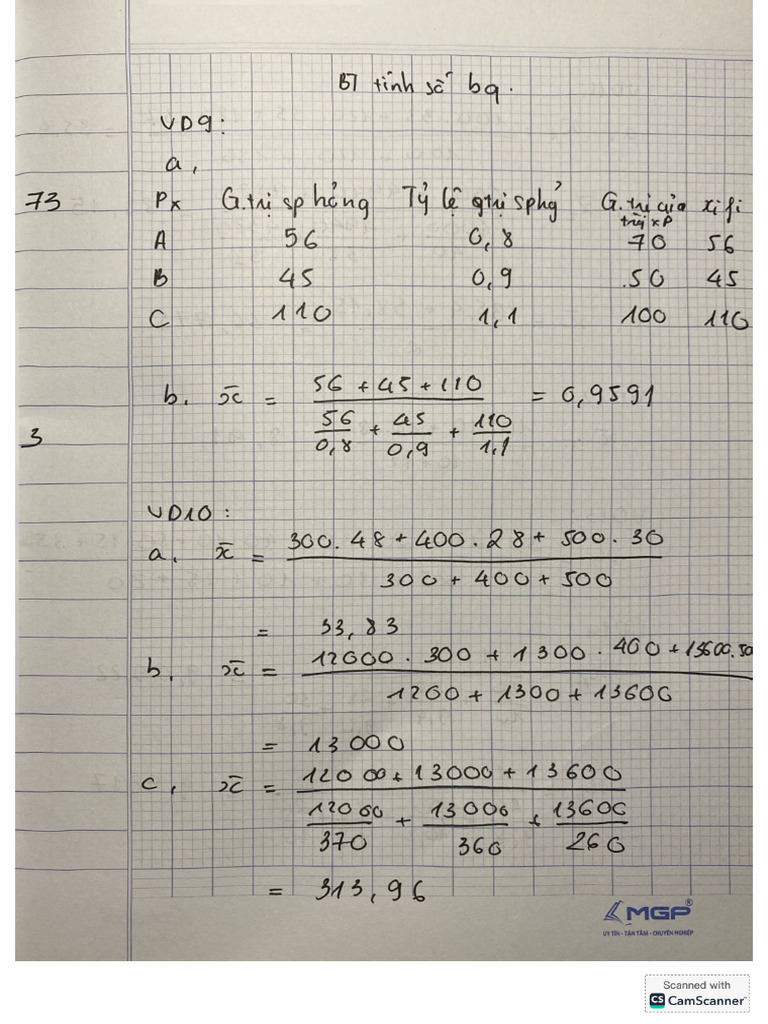 BT tính số bq.
VD9:
a,
73 Px G.trị sp hỏng Tỷ lệ gtrị sphỏ G.trị của xi fi
từg x P
A 56 0,8 70 56
B 45 0,9 50 45
C 110 1,1 100 110
b. x̄ = (56 + 45 + 110) / (56/0,8 + 45/0,9 + 110/1,1) = 0,9591
3
VD10:
a. x̄ = (300. 48 + 400. 28 + 500. 30) / (300 + 400 + 500)
= 33,83
b. x̄ = (12000. 300 + 1300. 400 + 13600.50) / (1200 + 1300 + 13600)
= 13000
c, x̄ = (12000 + 13000 + 13600) / (12000/370 + 13000/360 + 13600/260)
= 313,96
MGP®
UY TÍN - TẬN TÂM - CHUYÊN NGHIỆP
Scanned with
CS CamScanner